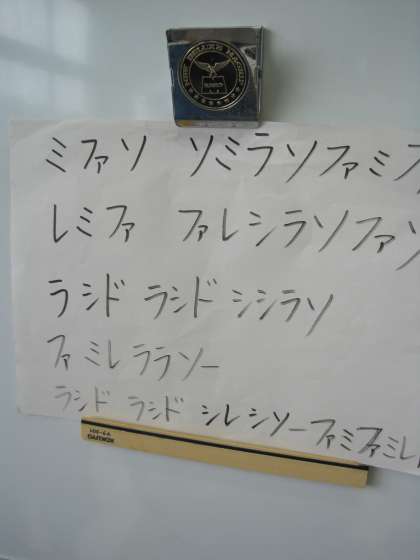 ミファソ ソミラソファミフ
レミファ ファレシラソファソ
ラシド ラシド シシラソ
ファミレララソー
ラシド ラシド シレシソーファミファミレ